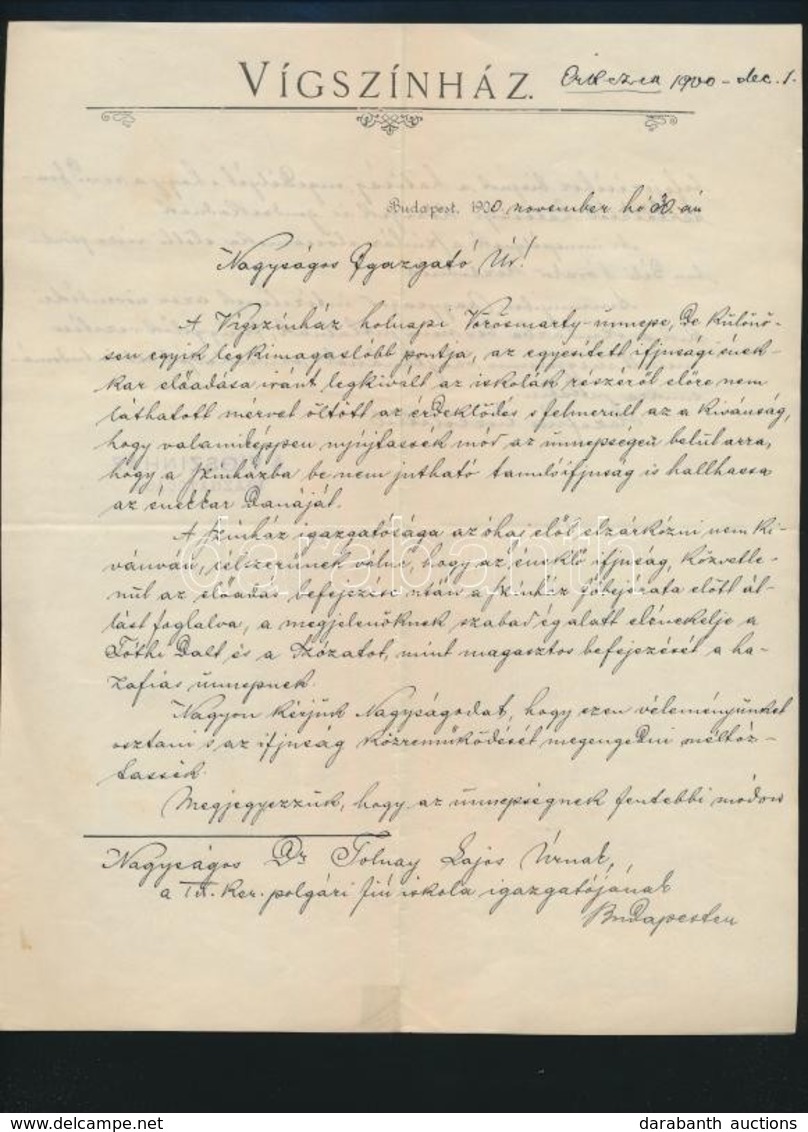 VÍGSZÍNHÁZ.
Érkezett 1900 - dec. 1.
Budapest, 1900 november hó 30-án
Nagyságos Igazgató Úr!
A Vígszínház holnapi Vörösmarty-ünnepe, de különö-
sen egyik legkimagaslóbb pontja, az egyesített ifjusági ének-
kar előadása iránt legkivált az iskolák részéről előre nem
láthatott mérvet öltött az érdeklődés s felmerült az a kivánság,
hogy valamiképpen nyújtassék mód az ünnepségen belül arra,
hogy a színházba be nem jutható tanulóifjuság is hallhassa
az énekkar danáját.
A színház igazgatósága az óhaj elől elzárkózni nem ki-
vánván, célszerünek vélné, hogy az éneklő ifjuság, közvetle-
nül az előadás befejezése után a színház főbejárata előtt ál-
lást foglalva, a megjelenőknek szabad ég alatt elénekelje a
Fóthi Dalt és a Szózatot, mint magasztos befejezését a ha-
zafias ünnepnek.
Nagyon kérjük Nagyságodat, hogy ezen véleményünket
osztani s az ifjuság közreműködését megengedni méltóz-
tassék.
Megjegyezzük, hogy az ünnepségnek fentebbi módon
Nagyságos Dr Tolnay Lajos Úrnak,
a ker. polgári fiú iskola igazgatójának
Budapesten
darabanth
darabanth auctions